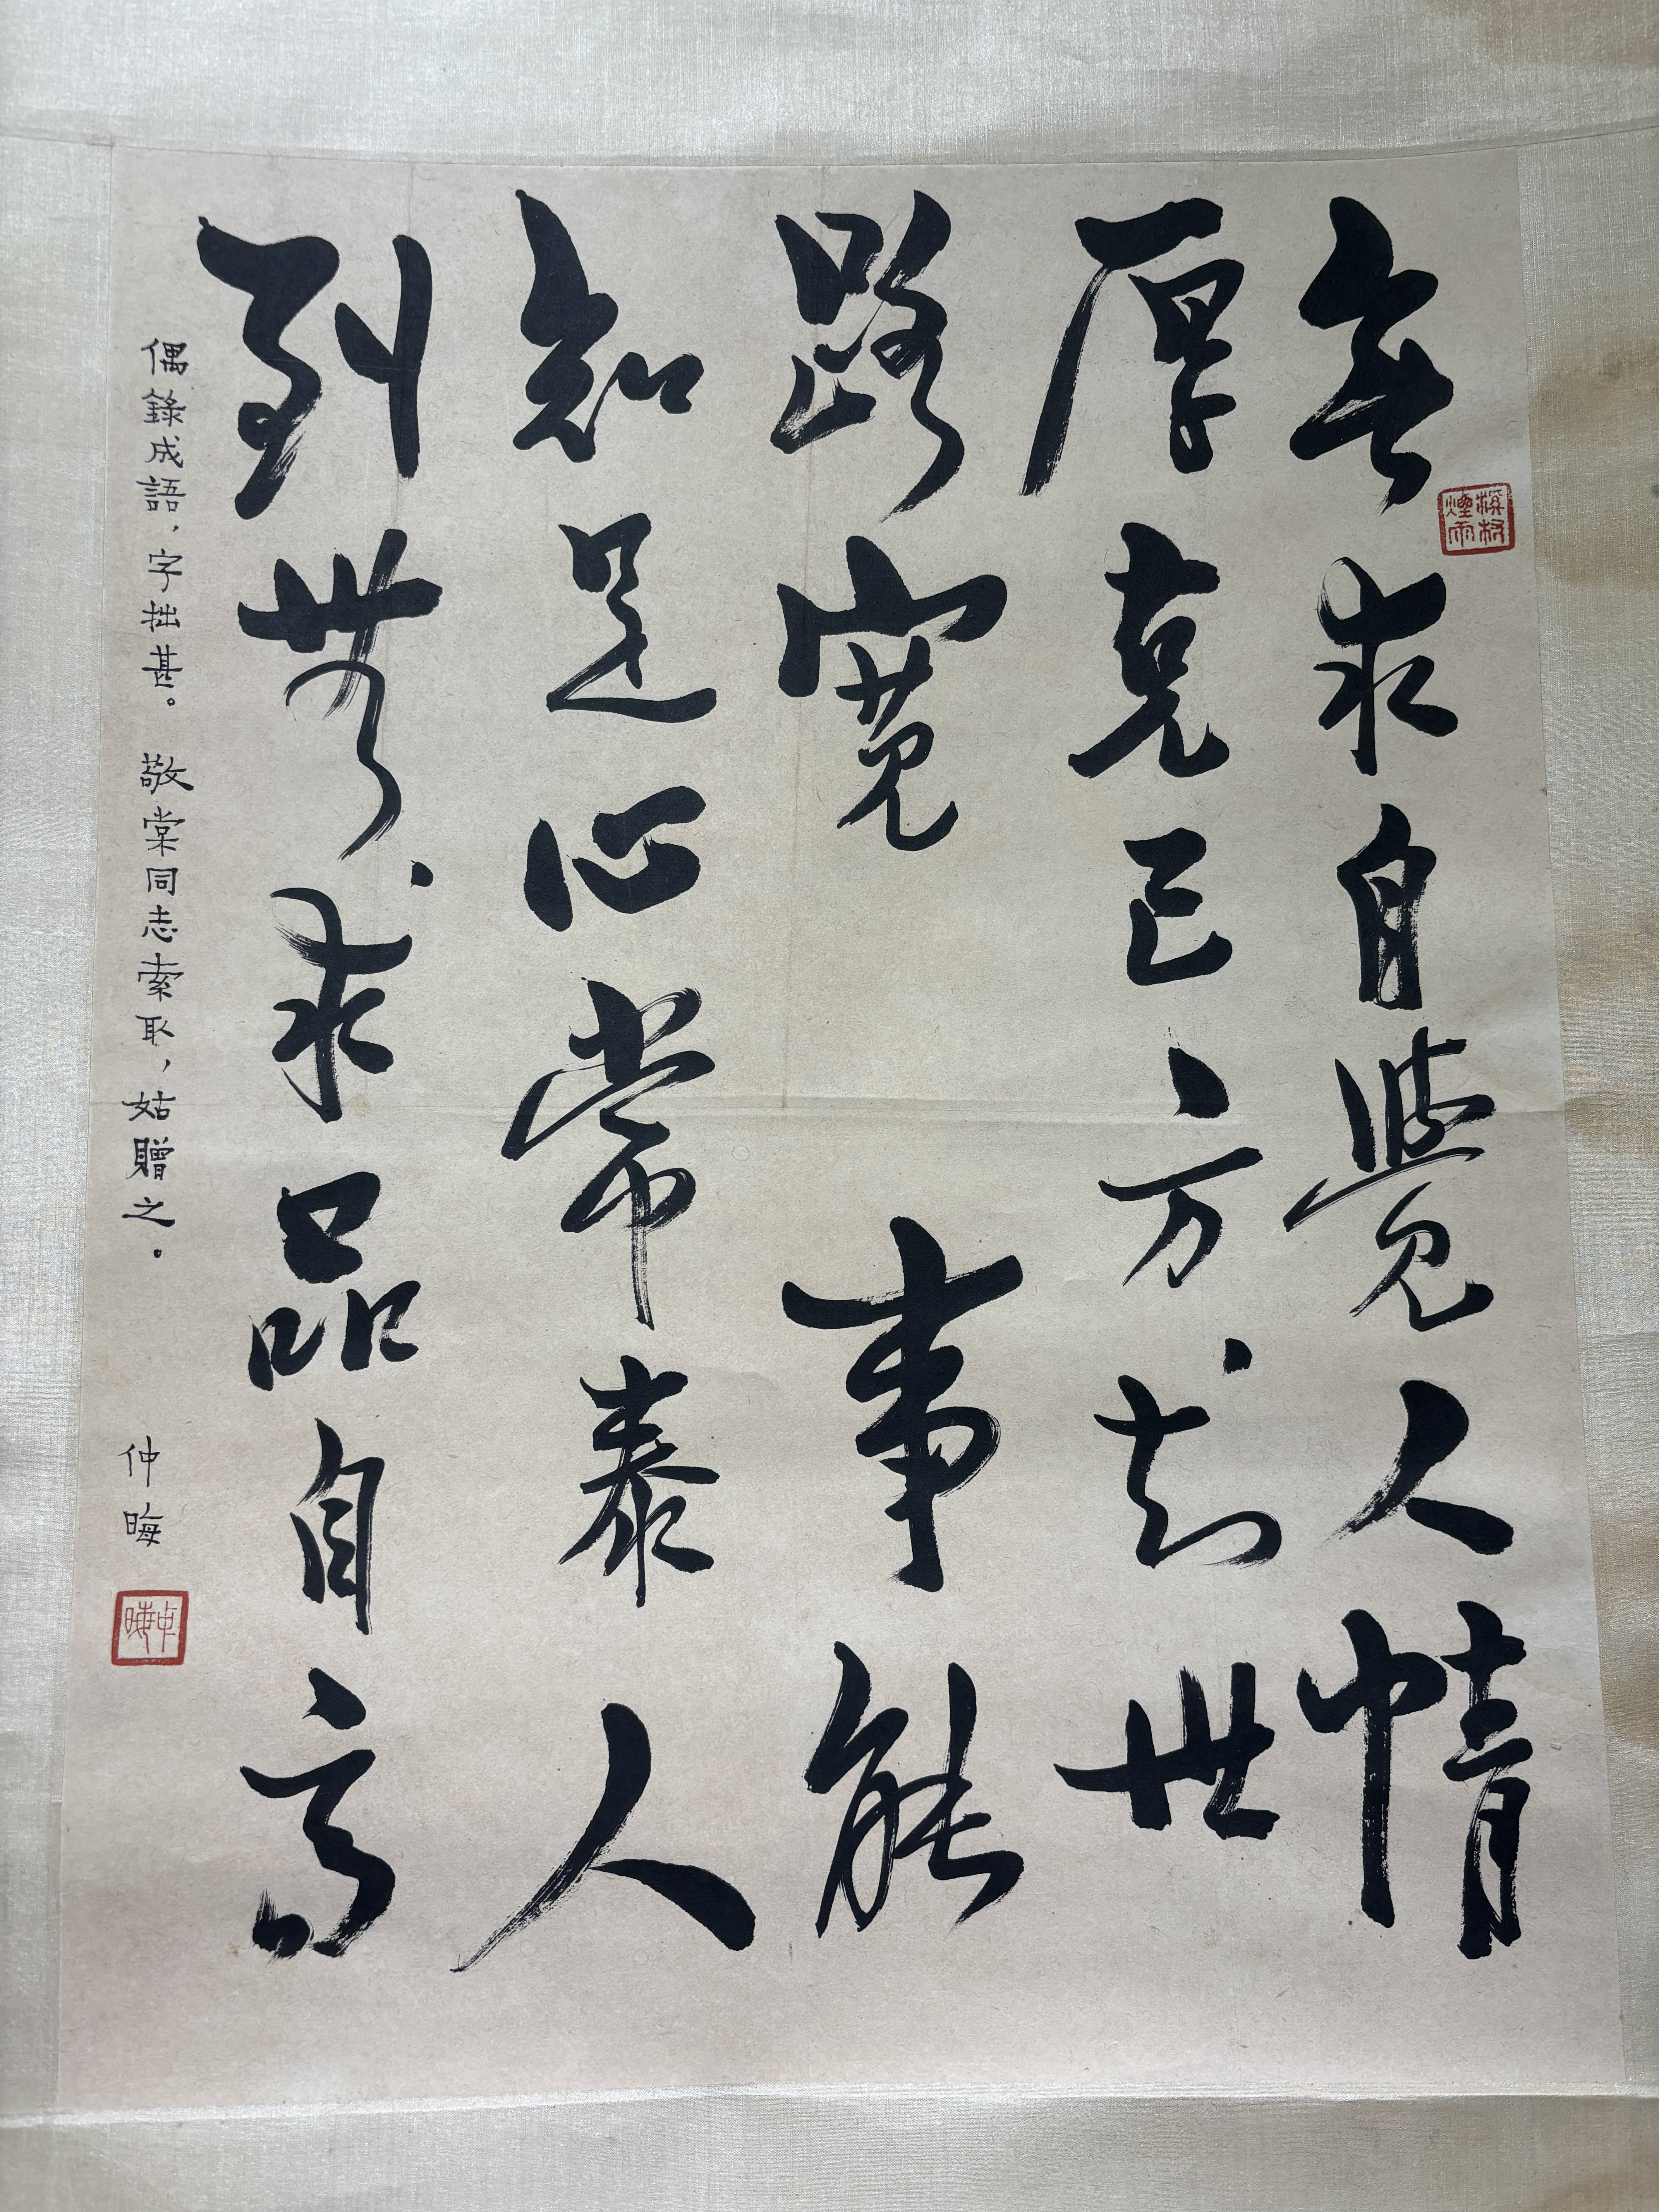 無求自覺人情
厚克己方知世
路寬 事能
知足心常泰人
到無求品自高
偶錄成語，字拙甚。敬棠同志索取，姑贈之。
仲晦
煙雨